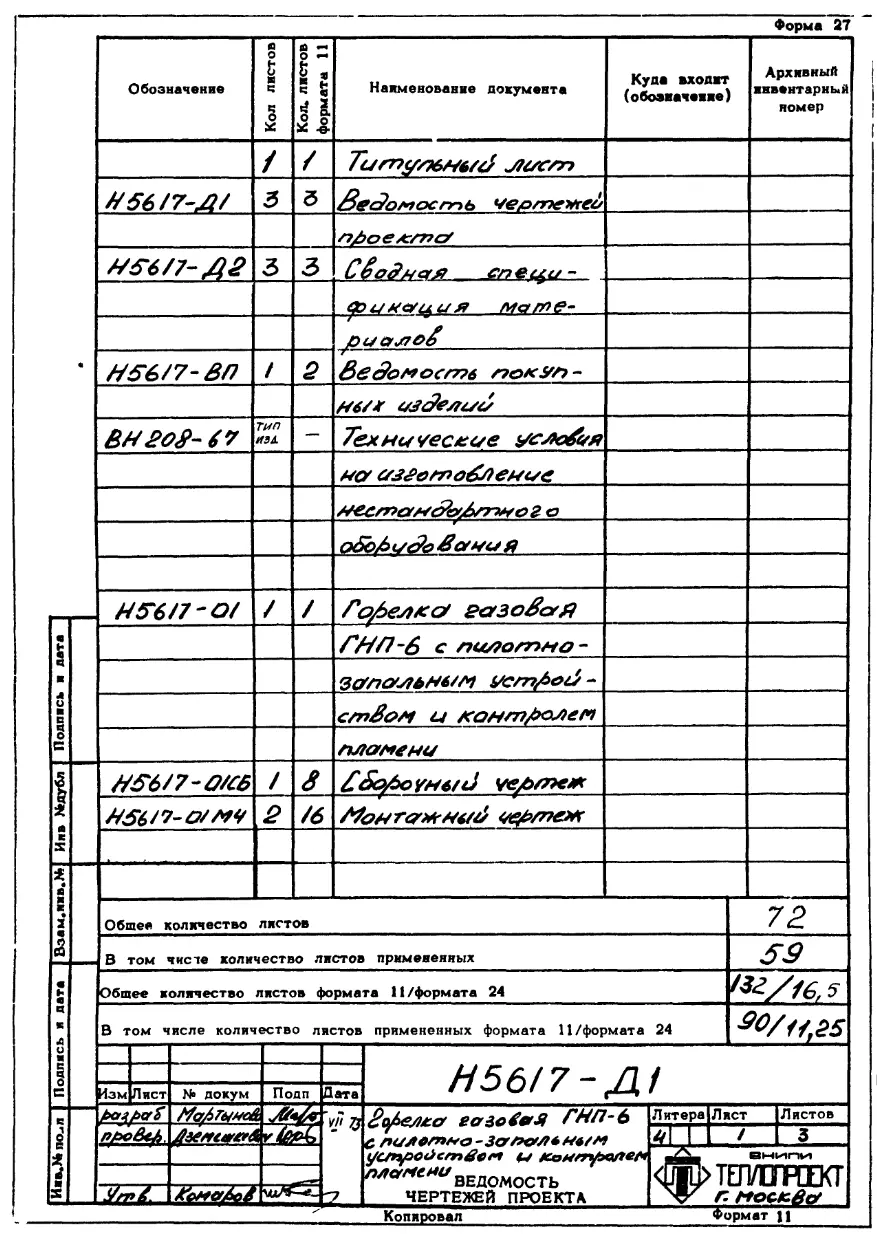 Форма 27
Обозначение
Кол листов
Кол. листов формата 11
Наименование документа
Куда входит (обозначение)
Архивный инвентарный номер
1 1 Титульный лист
Н5617-Д1 3 3 Ведомость чертежей
проекта
Н5617-Д2 3 3 Сводная специ-
фикация мате-
риалов
Н5617-ВП 1 2 Ведомость покуп-
ных изделий
ВН 208-67 тип изд. — Технические условия
на изготовление
нестандартного
оборудования
Н5617-01 1 1 Горелка газовая
ГНП-6 с пилотно-
запальным устрой-
ством и контролем
пламени
Н5617-01СБ 1 8 Сборочный чертеж
Н5617-01МЧ 2 16 Монтажный чертеж
Общее количество листов 72
В том числе количество листов примененных 59
Общее количество листов формата 11/формата 24 132/16,5
В том числе количество листов примененных формата 11/формата 24 90/11,25
Подпись и дата
Инв №дубл
Взам.инв.№
Подпись и дата
Инв.№ подл
Н5617-Д1
Изм Лист № докум Подп Дата
разраб Мартынов VII 73
провер.
Утв. Комаров
Горелка газовая ГНП-6
с пилотно-запальным
устройством и контролем
пламени
ВЕДОМОСТЬ
ЧЕРТЕЖЕЙ ПРОЕКТА
Литера Лист Листов
И 1 3
ВНИПИ
ТЕПЛОПРОЕКТ
г. Москва
Копировал Формат 11